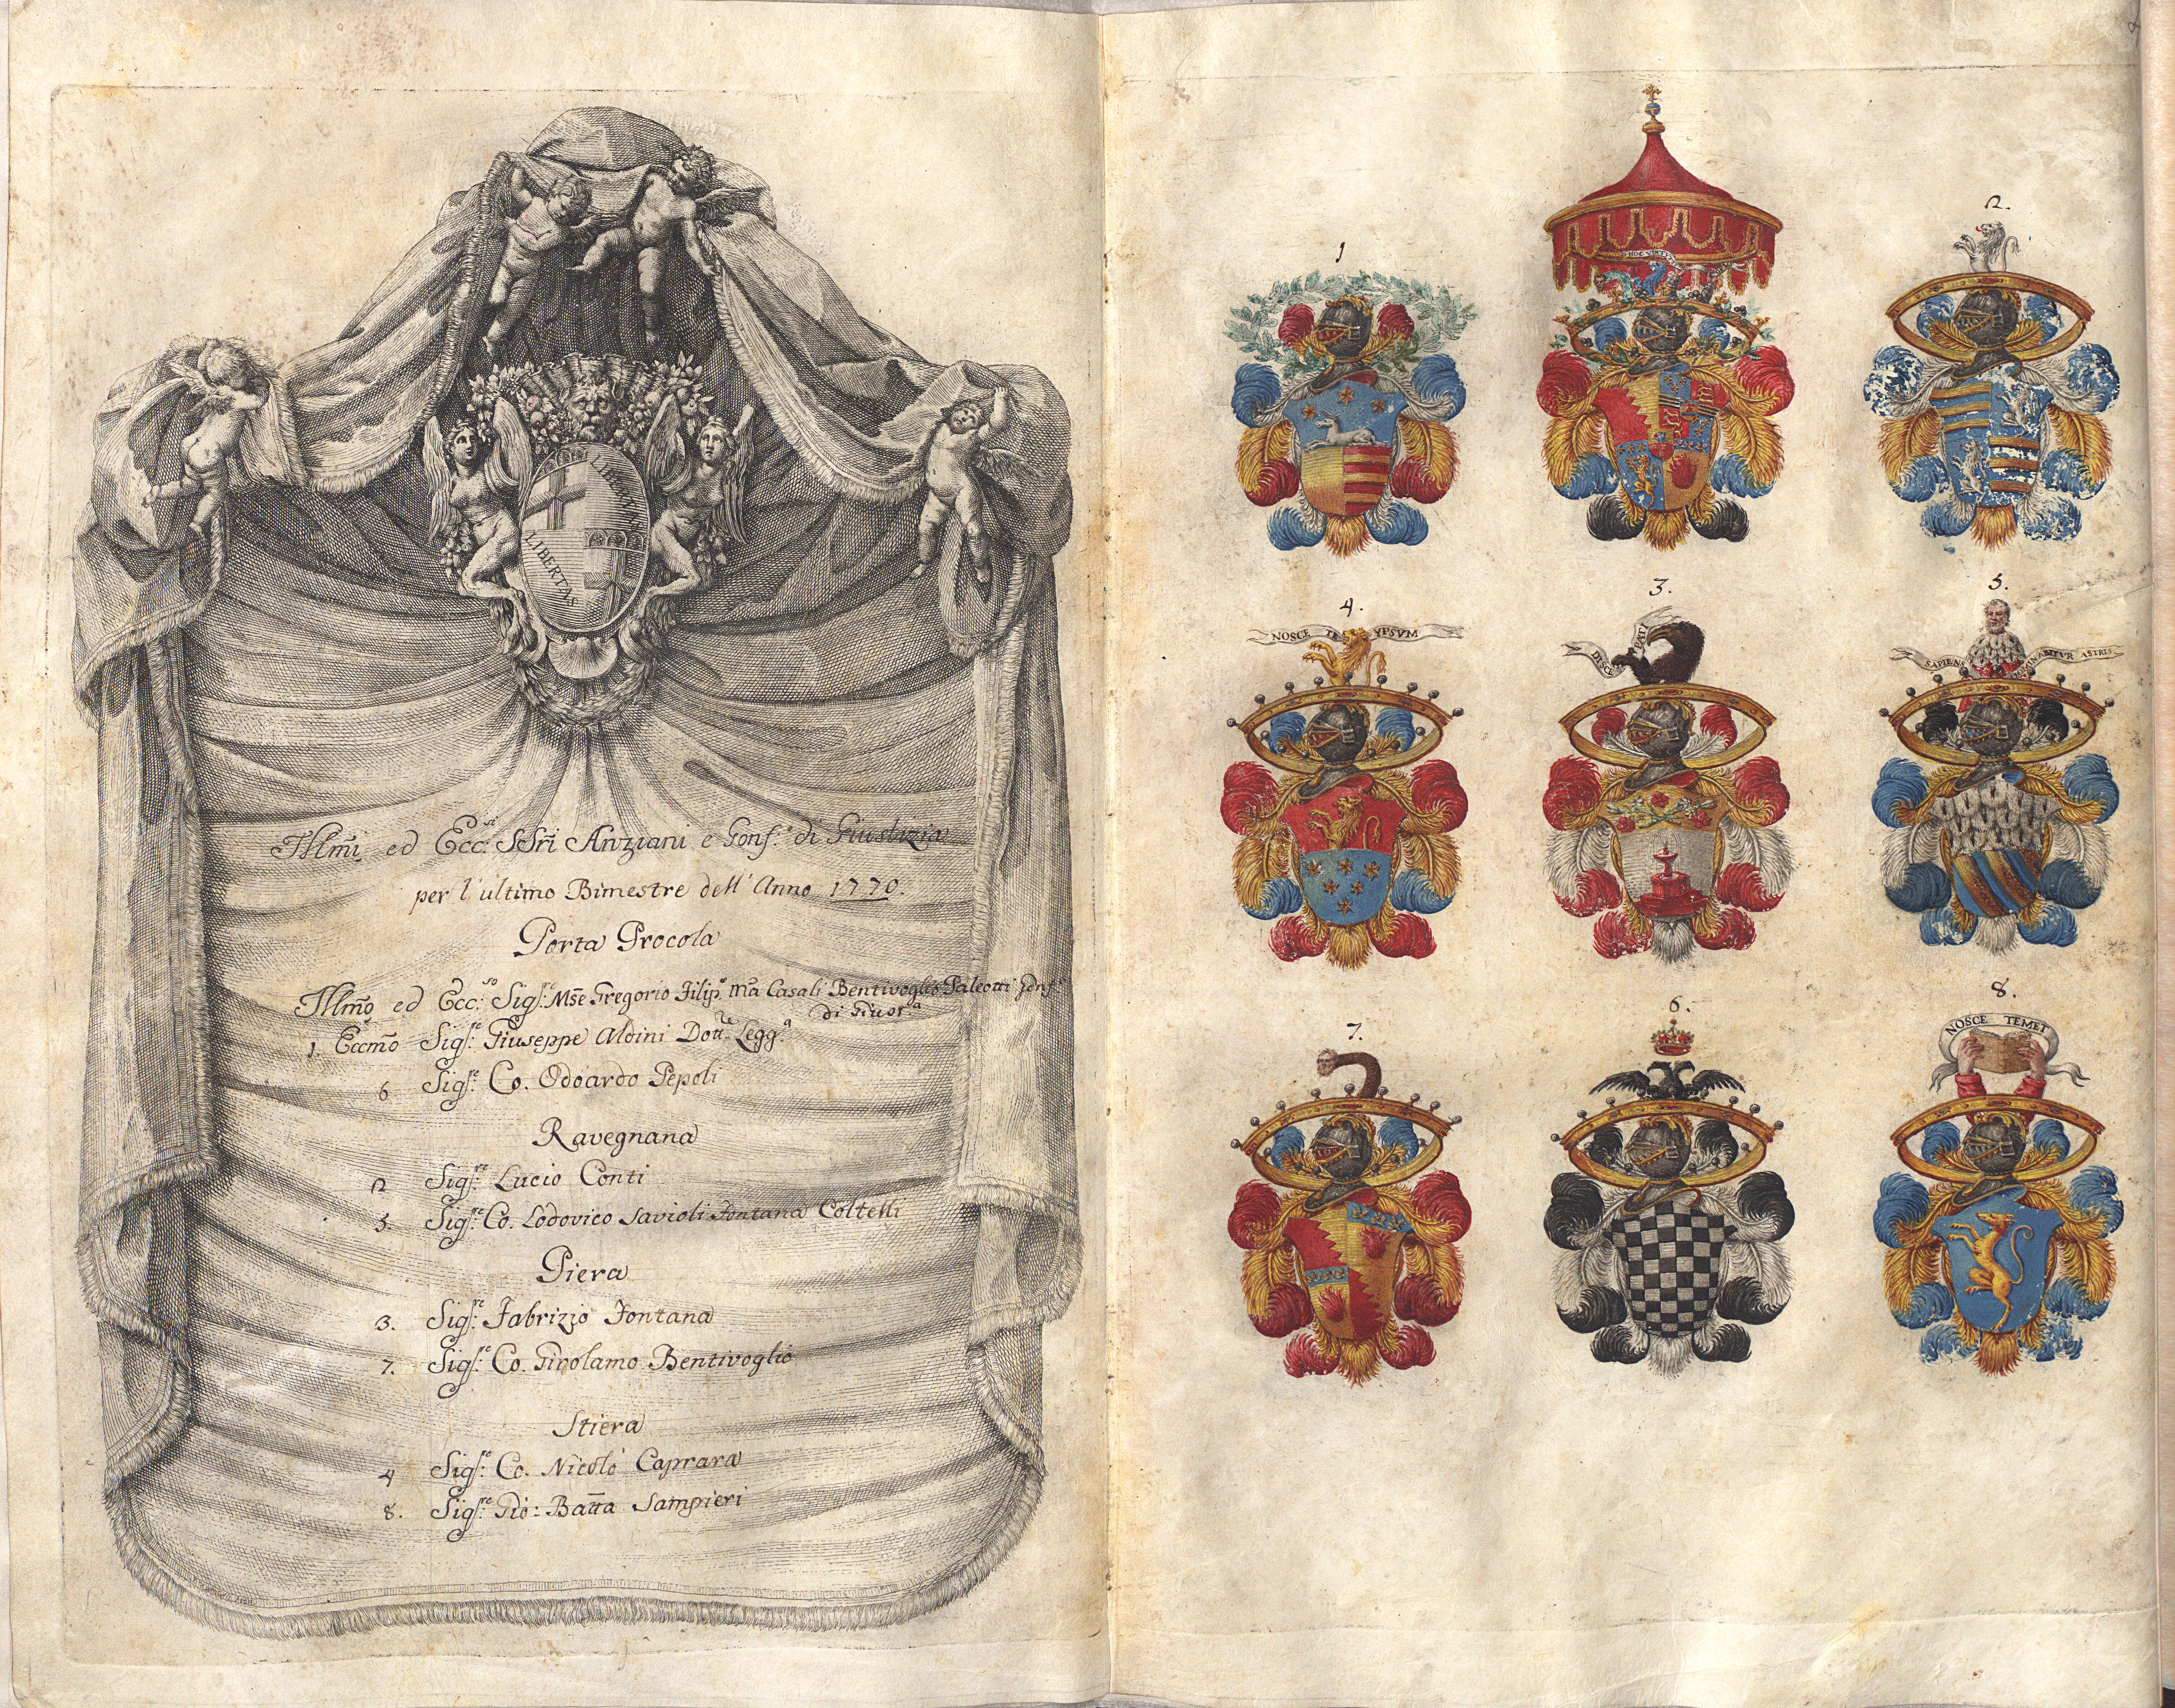 LIBERTAS
LIBERTAS
Ill.mi ed Ecc.si SSri Anziani e Gonf.e di Giustizia
per l'ultimo Bimestre dell'Anno 1770.
Porta Procola
Ill.mo ed Ecc.so Sig.re Mse Gregorio Filip.o Ma Casali Bentivoglio Paleotti Gonf.e
di Giust.a
1 Eccmo Sig.re Giuseppe Aldini Dott.e Legg.a
6 Sig.re Co. Odoardo Pepoli
Ravegnana
2 Sig.re Lucio Conti
5. Sig.re Co. Lodovico Savioli Fontana Coltelli
Piera
3. Sig.re Fabrizio Fontana
7. Sig.re Co. Girolamo Bentivoglio
Stiera
4 Sig.re Co. Nicolò Caprara
8. Sig.re Gio: Batta Sampieri
1
2.
4.
NOSCE TE YPSVM
3.
DISCE PATI
5.
SAPIENS DOMINABITVR ASTRIS
7.
6.
8.
NOSCE TEMET